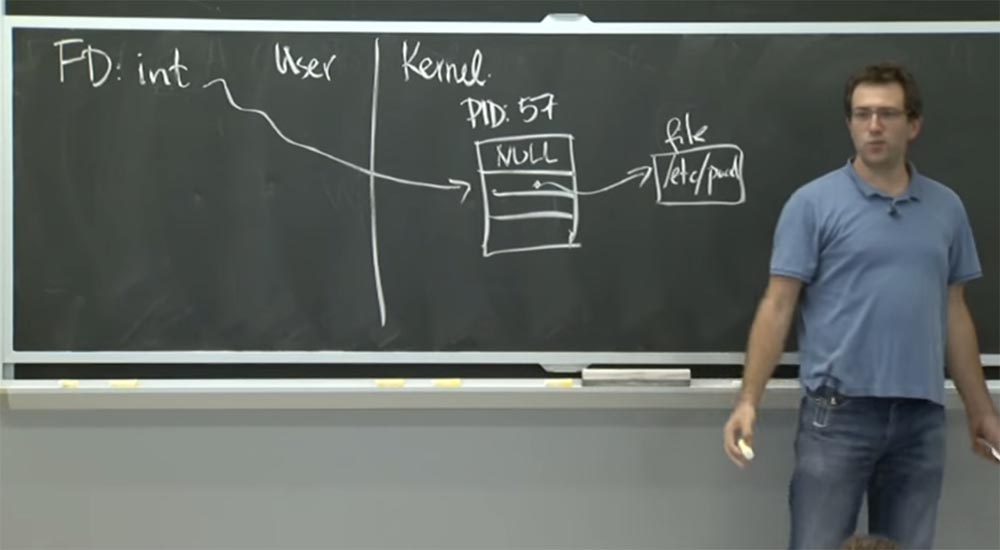 FD: int
User
Kernel.
PID: 57
NULL
file
/etc/pwd